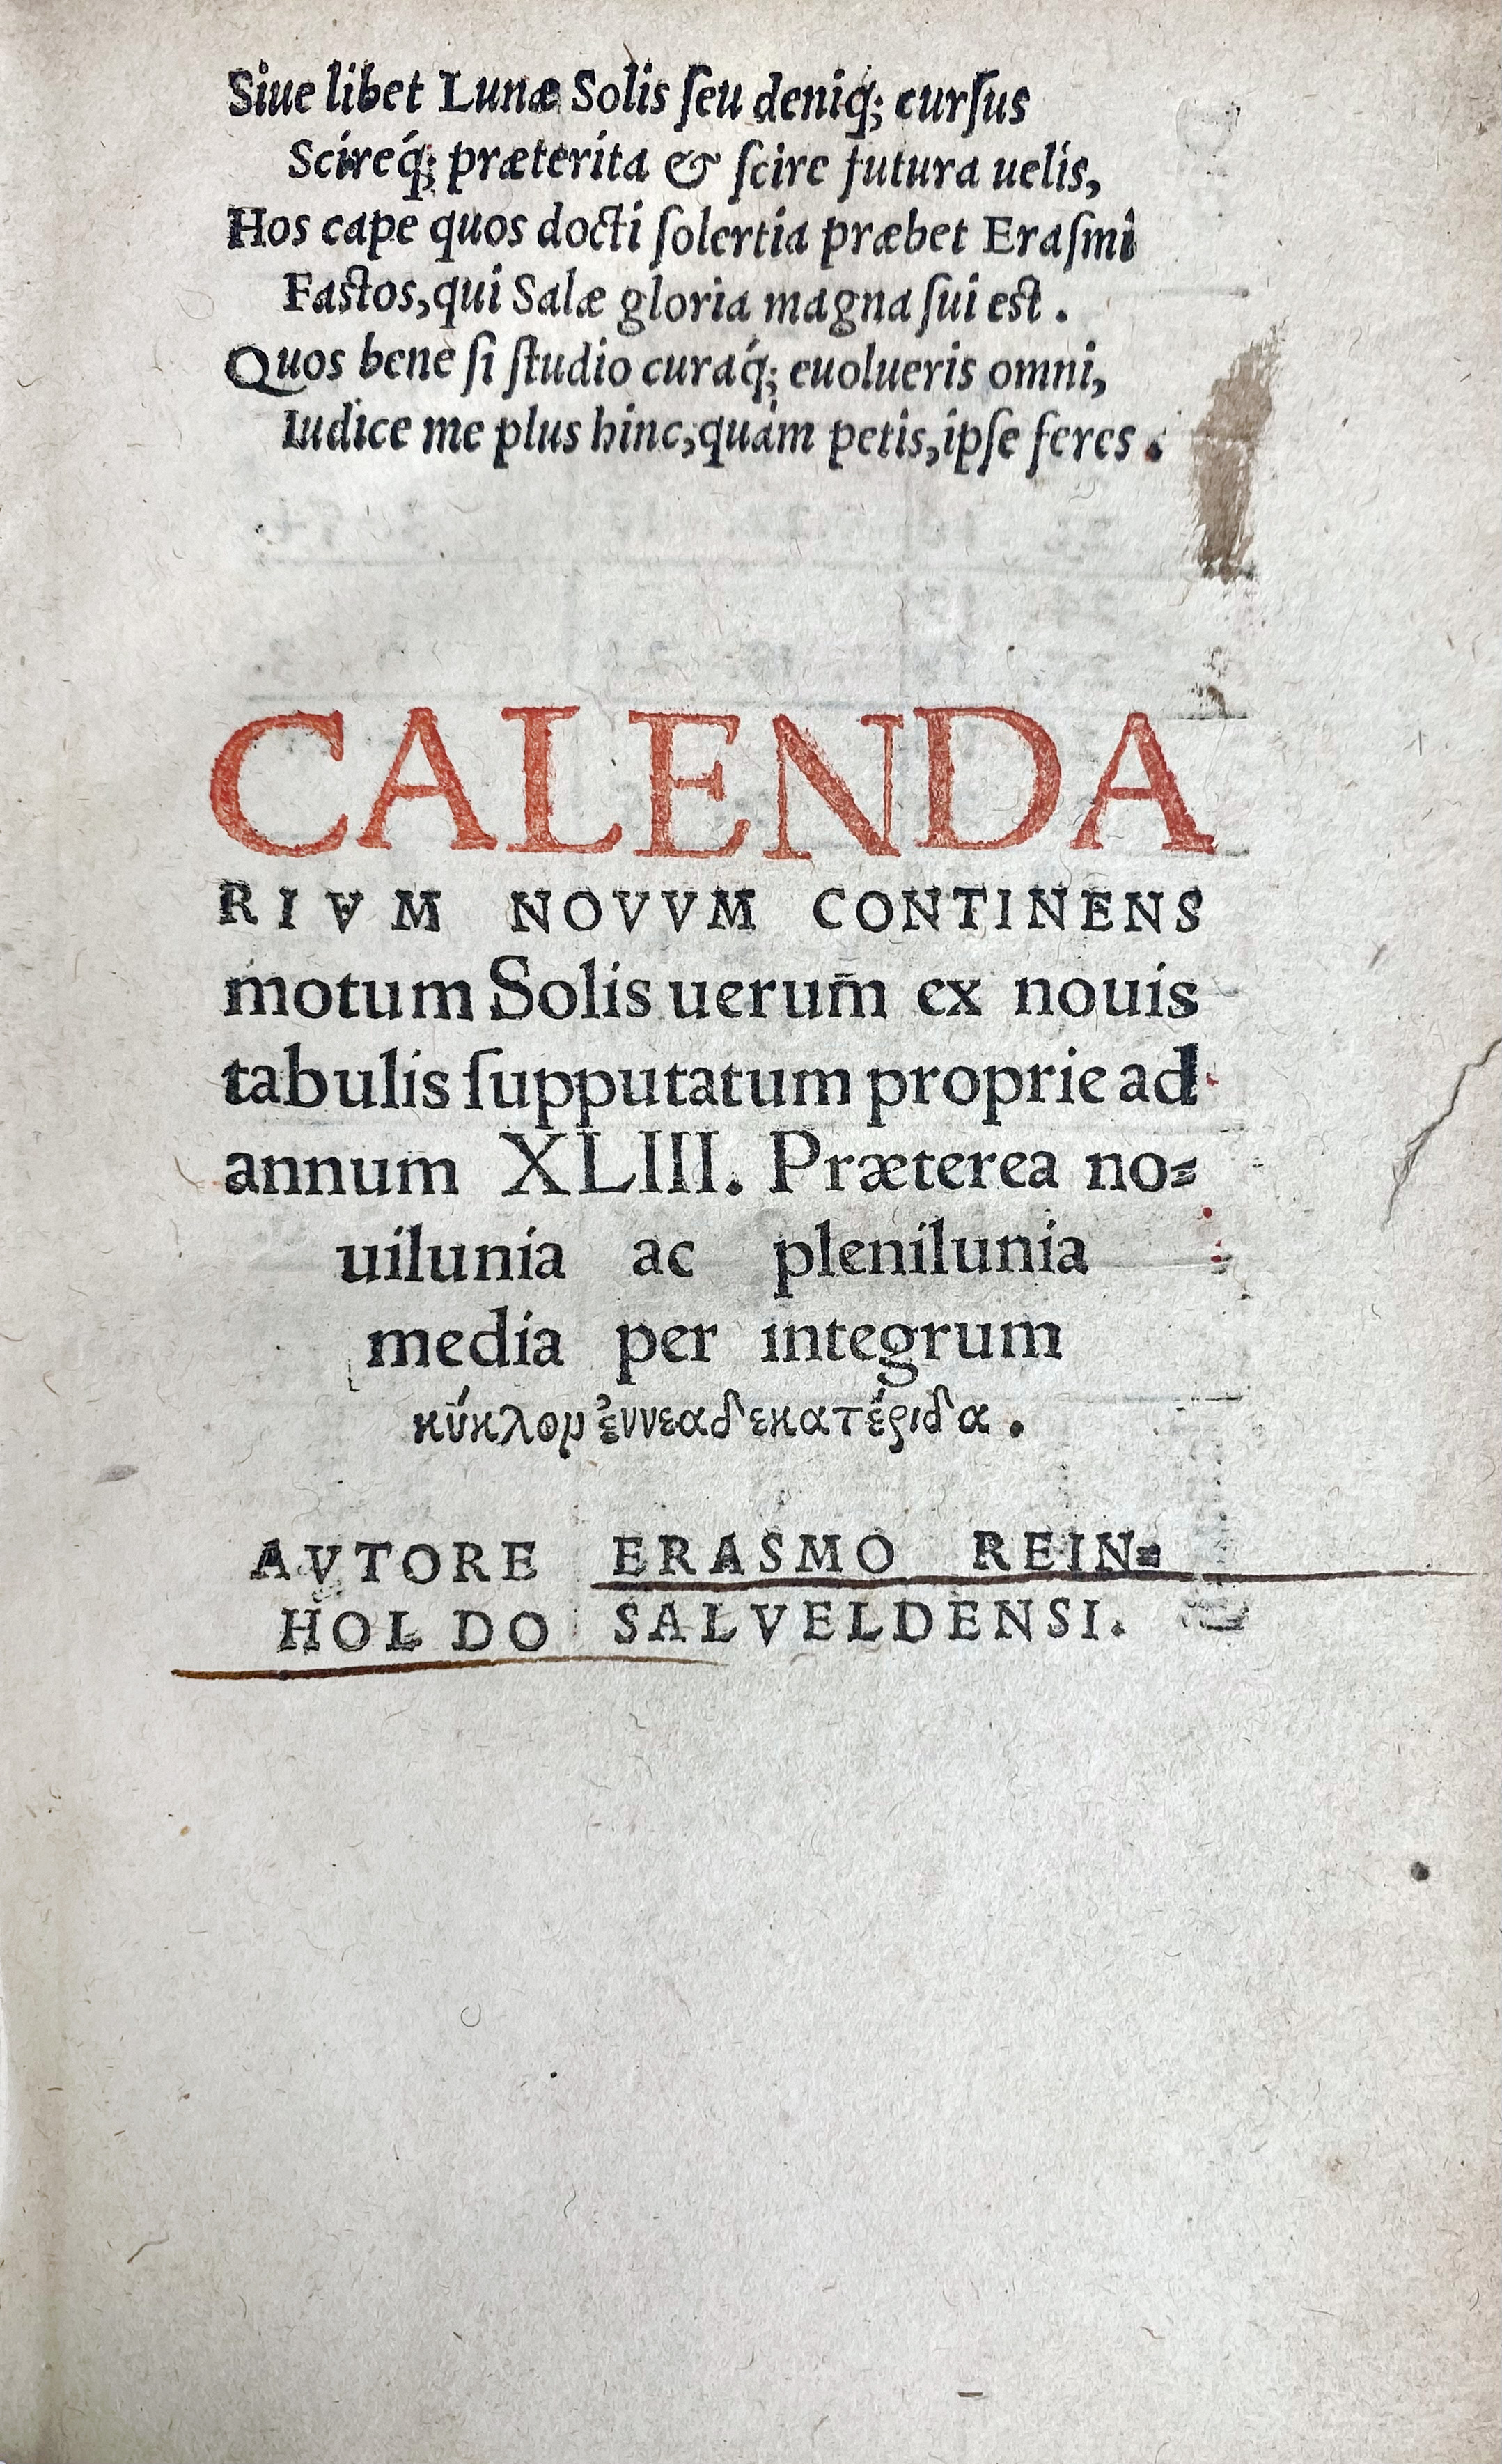 Siue libet Lunæ Solis ſeu deniq́; curſus
Scireq́; præterita & ſcire futura uelis,
Hos cape quos docti ſolertia præbet Eraſmi
Faſtos, qui Salæ gloria magna ſui eſt.
Quos bene ſi ſtudio curaq́; euolueris omni,
Iudice me plus hinc, quàm petis, ipſe feres.
CALENDA
RIVM NOVVM CONTINENS
motum Solis uerum̄ ex nouis
tabulis ſupputatum proprie ad
annum XLIII. Præterea no⸗
uilunia ac plenilunia
media per integrum
κύκλον ἐννεαδεκατέριδα.
AVTORE ERASMO REIN⸗
HOLDO SALVELDENSI.